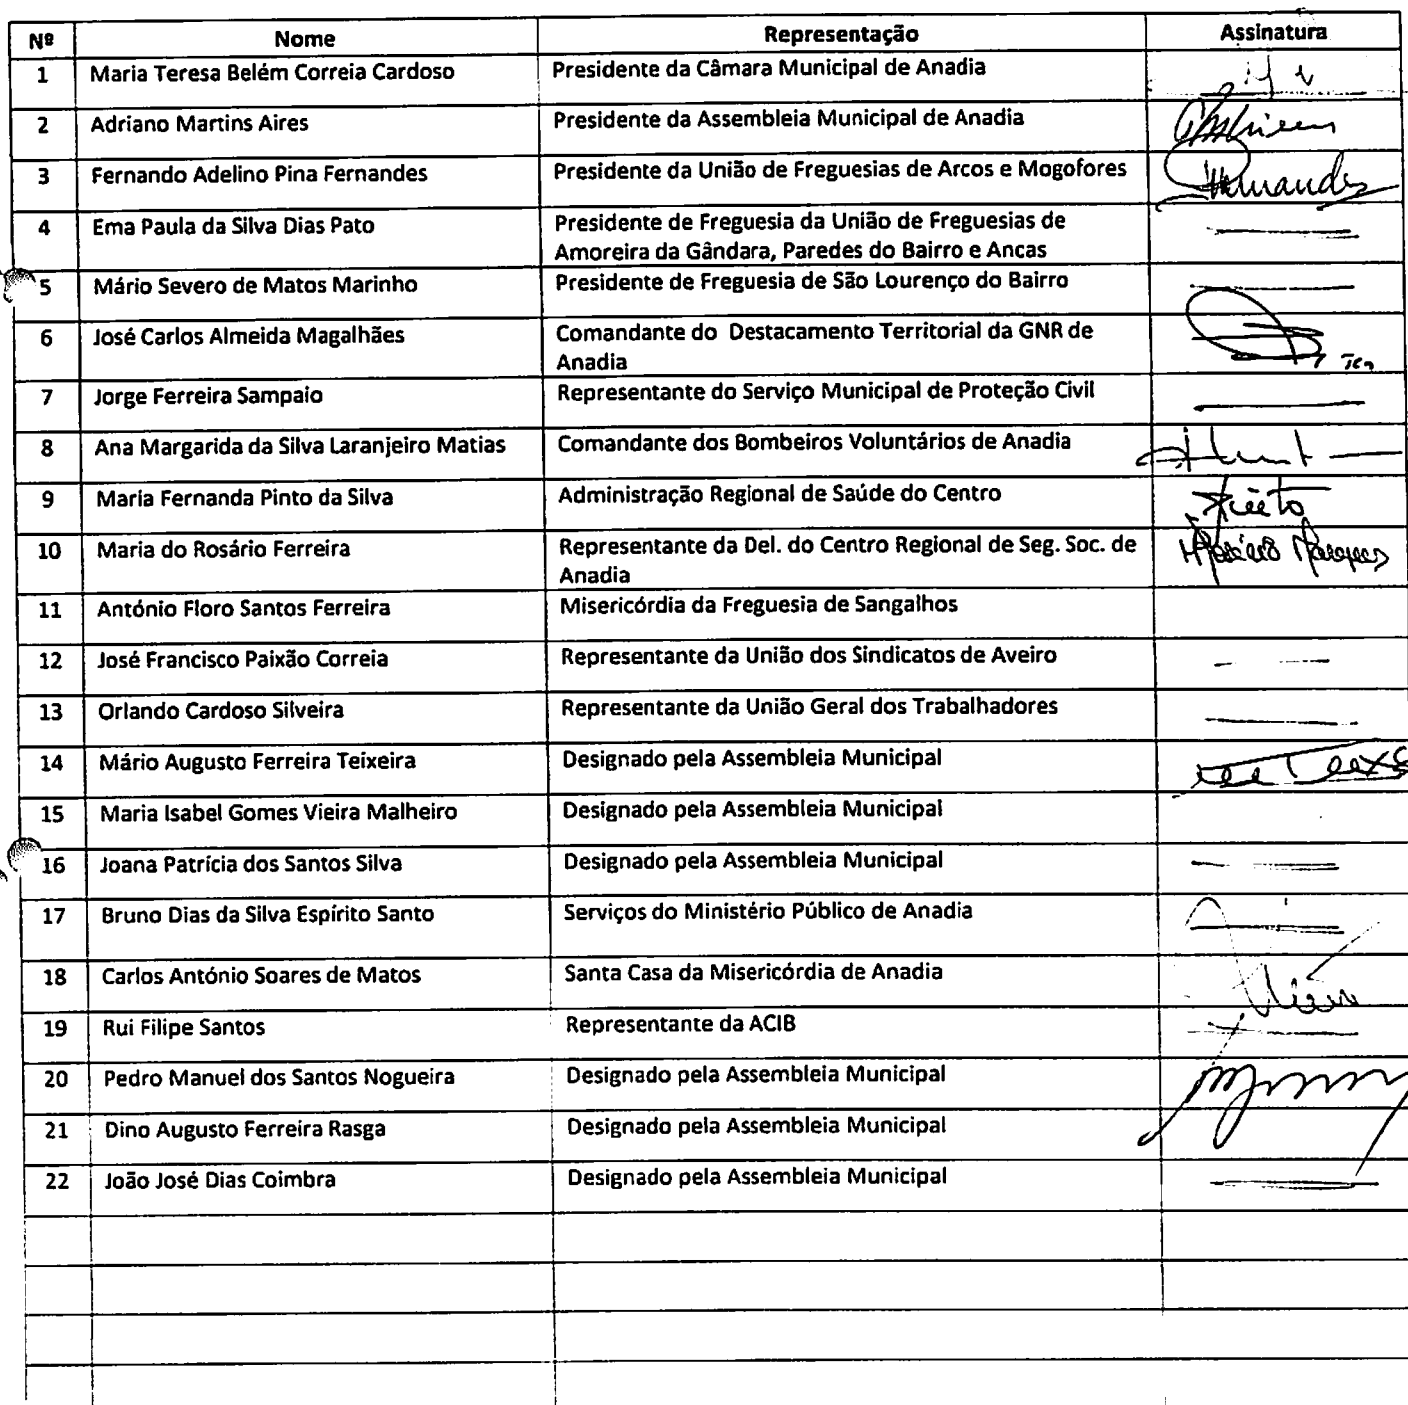 Nº Nome Representação Assinatura
1 Maria Teresa Belém Correia Cardoso Presidente da Câmara Municipal de Anadia
2 Adriano Martins Aires Presidente da Assembleia Municipal de Anadia
3 Fernando Adelino Pina Fernandes Presidente da União de Freguesias de Arcos e Mogofores Fernandes
4 Ema Paula da Silva Dias Pato Presidente de Freguesia da União de Freguesias de
Amoreira da Gândara, Paredes do Bairro e Ancas
5 Mário Severo de Matos Marinho Presidente de Freguesia de São Lourenço do Bairro
6 José Carlos Almeida Magalhães Comandante do Destacamento Territorial da GNR de
Anadia
7 Jorge Ferreira Sampaio Representante do Serviço Municipal de Proteção Civil
8 Ana Margarida da Silva Laranjeiro Matias Comandante dos Bombeiros Voluntários de Anadia
9 Maria Fernanda Pinto da Silva Administração Regional de Saúde do Centro
10 Maria do Rosário Ferreira Representante da Del. do Centro Regional de Seg. Soc. de
Anadia
11 António Floro Santos Ferreira Misericórdia da Freguesia de Sangalhos
12 José Francisco Paixão Correia Representante da União dos Sindicatos de Aveiro
13 Orlando Cardoso Silveira Representante da União Geral dos Trabalhadores
14 Mário Augusto Ferreira Teixeira Designado pela Assembleia Municipal
15 Maria Isabel Gomes Vieira Malheiro Designado pela Assembleia Municipal
16 Joana Patrícia dos Santos Silva Designado pela Assembleia Municipal
17 Bruno Dias da Silva Espírito Santo Serviços do Ministério Público de Anadia
18 Carlos António Soares de Matos Santa Casa da Misericórdia de Anadia
19 Rui Filipe Santos Representante da ACIB
20 Pedro Manuel dos Santos Nogueira Designado pela Assembleia Municipal
21 Dino Augusto Ferreira Rasga Designado pela Assembleia Municipal
22 João José Dias Coimbra Designado pela Assembleia Municipal